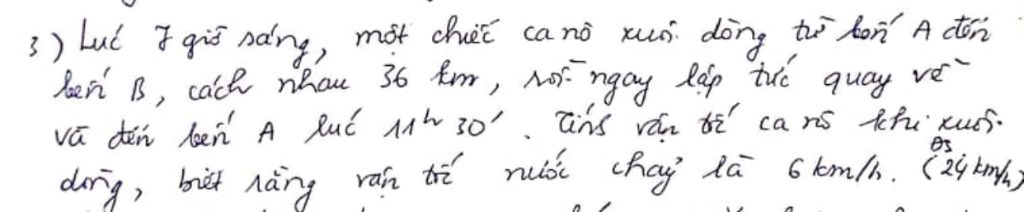 3) Lúc 7 giờ sáng, một chiếc ca nô xuôi dòng từ bến A đến
bến B, cách nhau 36 km, rồi ngay lập tức quay về
và đến bến A lúc 11h 30'. Tính vận tốc ca nô khi xuôi
ĐS
dòng, biết rằng vận tốc nước chảy là 6 km/h. (24 km/h)